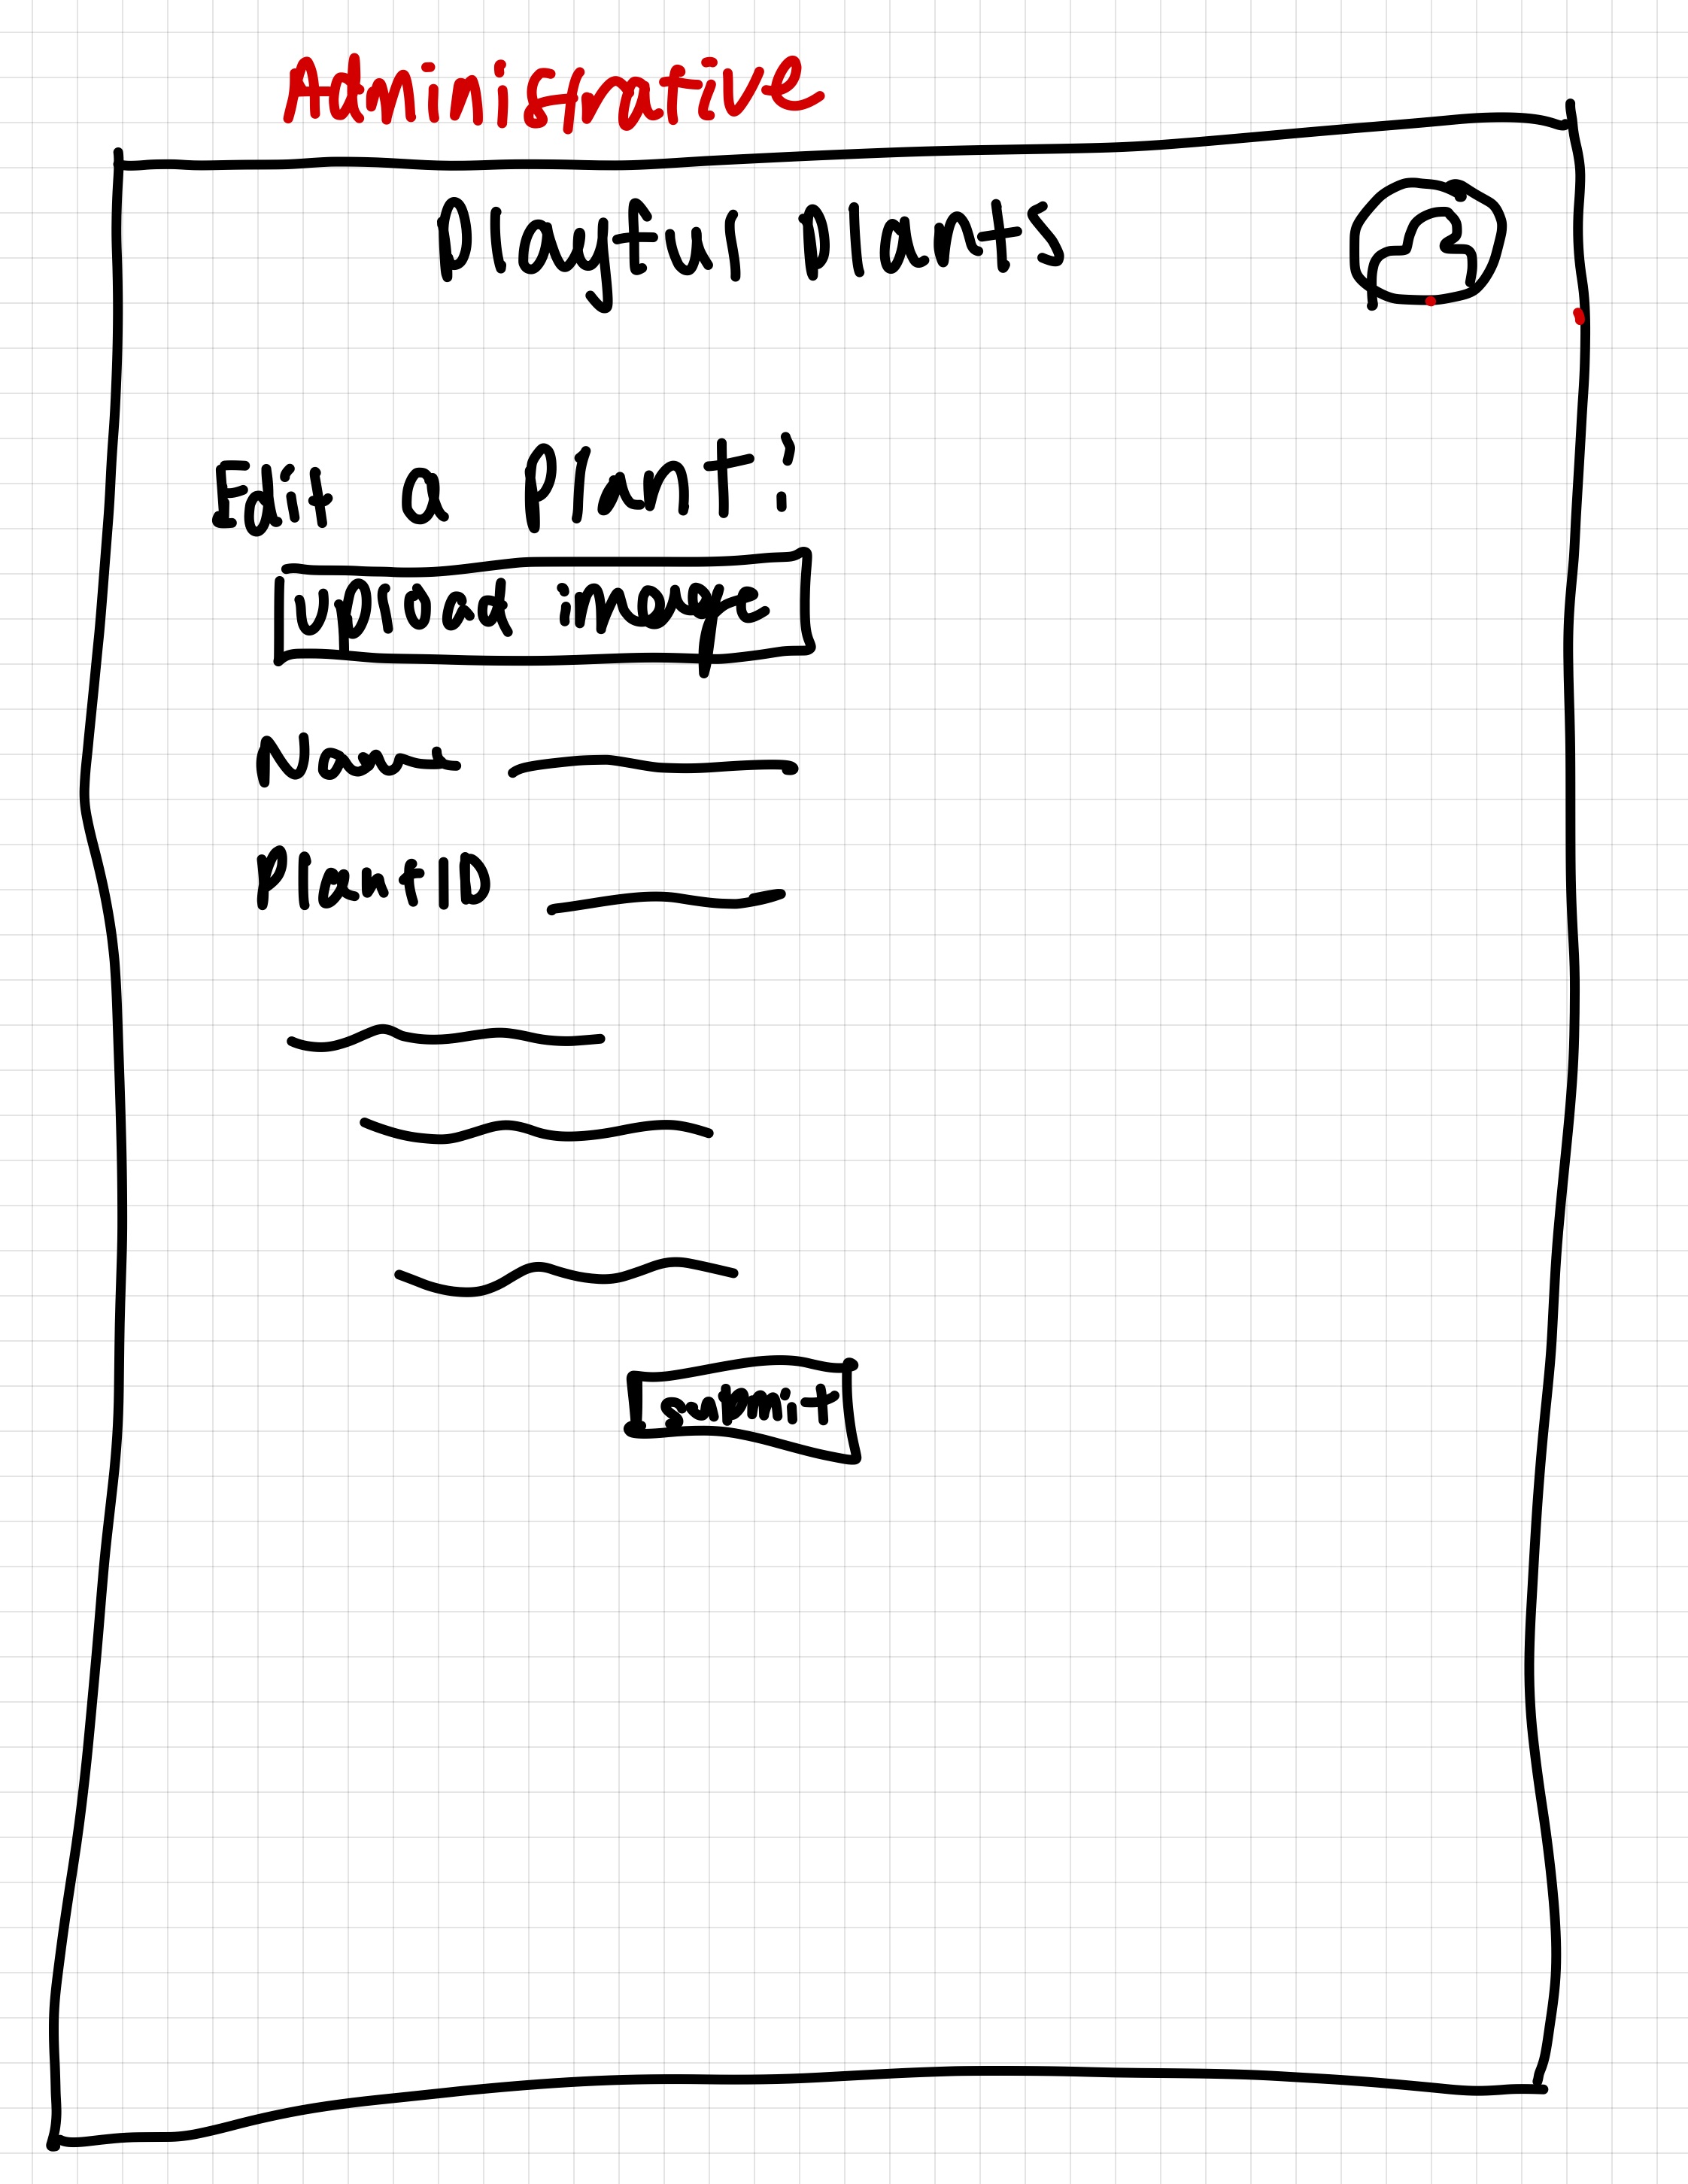 Adminisrative
Playful Plants
Edit a plant:
upload image
Name
PlantID
submit